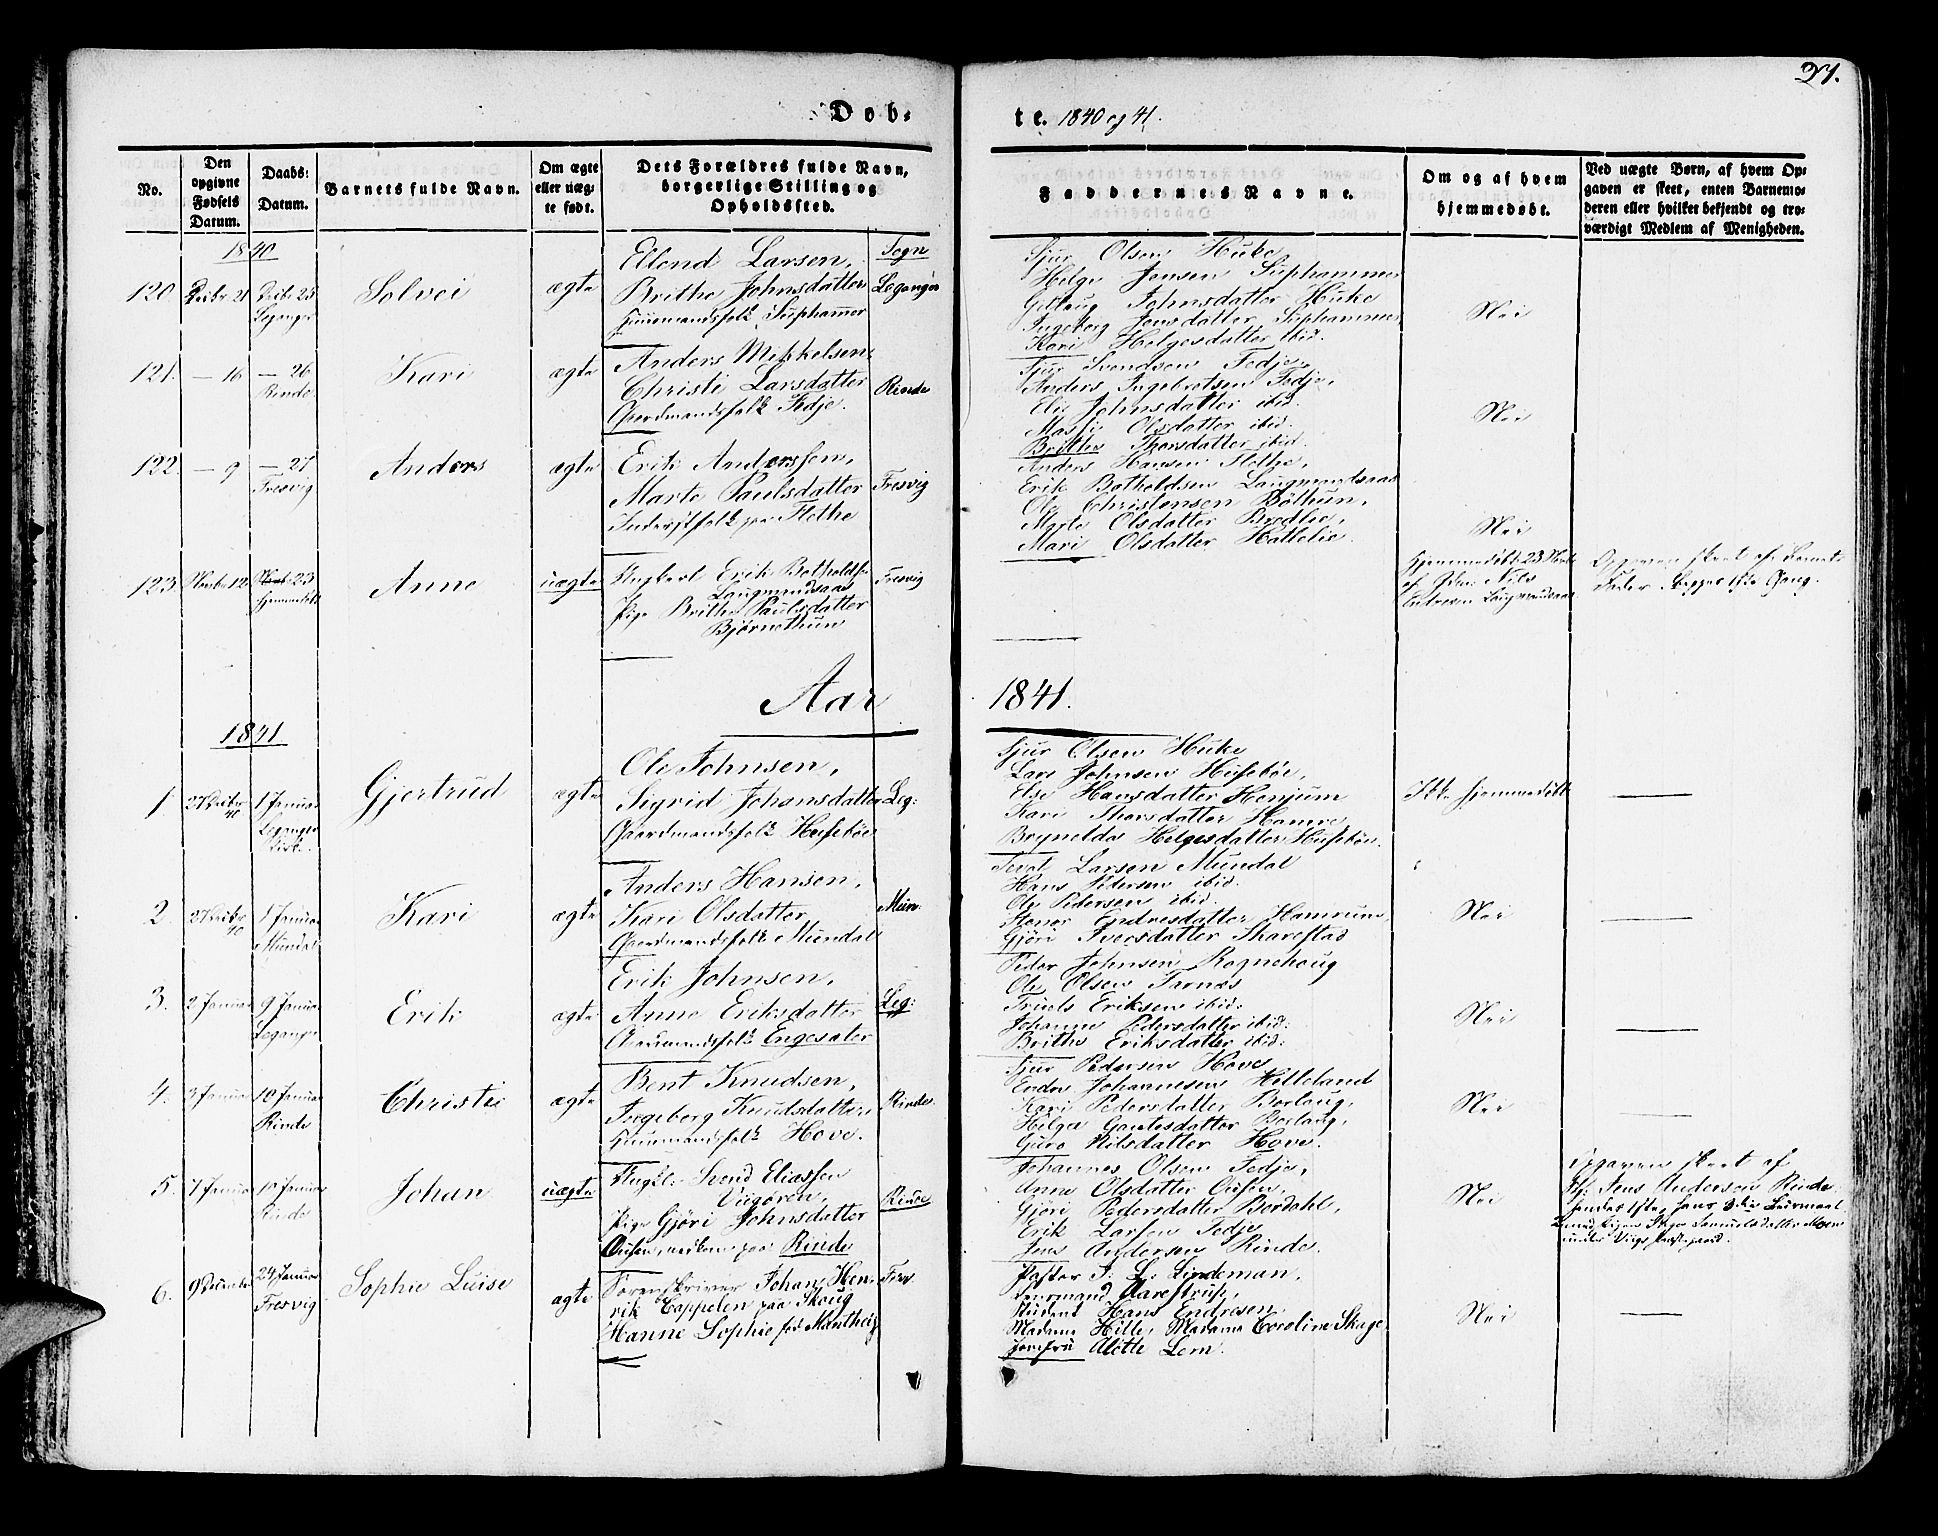 27.
Døb-
te. 1840 og 41.
No.
Den opgivne Fødsels Datum.
Daabs: Datum.
Barnets fulde Navn.
Om ægte eller uæg- te født.
Dets Forældres fulde Navn, borgerlige Stilling og Opholdssted.
Faddernes Navne.
Om og af hvem hjemmedøbt.
Ved uægte Børn, af hvem Op- gaven er skeet, enten Barnemo- deren eller hvilket bekjendt og tro- værdigt Medlem af Menigheden.
1840
Sogn
120
Decbr 21
Decbr 25
Leganger
Solvei
ægte
Elend Larsen,
Brithe Johnsdatter
Huusmandsfolk Suphammer
Leganger
Sjur Olsen Huke
Helge Jensen Suphammer
Gitlaug Johnsdatter Huke
Ingeborg Jensdatter Suphammer
Kari Helgesdatter ibid.
Nei
121.
— 16
— 26
Rinde
Kari
ægte
Anders Mikkelsen,
Christi Larsdatter
Gaardmandsfolk Fedje.
Rinde
Sjur Svendsen Fedje,
Anders Ingebretsen Fedje,
Eli Johnsdatter ibid.
Olsdatter ibid.
Brithe Thorsdatter ibid.
Nei
122.
— 9
— 27
Fresvig
Anders
ægte
Erik Anderssen,
Marte Paulsdatter
Inderstfolk paa Flethe
Fresvig
Anders Hansen Flethe,
Erik Botholdsen Langmandsaas
Ole Christensen Böthun,
Marte Olsdatter Bredlie,
Mari Olsdatter Hatlelie.
Nei
123.
Novbr 12.
Novbr 23
hjemmedöbt
Anne
uægte
Ungkarl Erik Botholdsen
Langmandsaas
Pige Brithe Paulsdatter
Björnethun
Fresvig
Hjemmedöbt 23 Novbr
af Nils
Endresen Langmandsaas
Opgaven skeet af Barnets
Fader. Begges 1ste Gang.
Aar
1841.
1841.
1
27 Decbr
40
1 Januar
Leganger
Kirke.
Gjertrud
ægte
Ole Johnsen,
Sigrid Johansdatter
Gaardmandsfolk Husebøe
Leg:
Sjur Olsen Huke
Lars Johnsen Husebøe,
Else Hansdatter Henjum
Kari Thorsdatter Hamre
Brynelda Helgesdatter Husebøe.
Ikke hjemmedöbt
2.
27 Decbr
40
1 Januar
Mundal
Kari
ægte
Anders Hansen,
Kari Olsdatter
Gaardmandsfolk Mundal
Mun.
Larsen Mundal
Hans Pedersen ibid.
Ole Pedersen ibid.
Endresdatter Hamrum,
Gjöri Iversdatter Skarestad
Nei
3.
2 Januar
9 Januar
Leganger
Erik
ægte
Erik Johnsen,
Anne Eriksdatter
Gaardmandsfolk Engesæter
Leg:
Peder Johnsen Rognehoug
Ole Olsen Tarnæs
Truels Eriksen ibid:
Johanne Pedersdatter ibid:
Brithe Eriksdatter ibid:
Nei
4.
3 Januar
10 Januar
Rinde
Christi
ægte
Bent Knudsen,
Ingeborg Knudsdatter,
Huusmandsfolk Hove.
Rinde.
Sjur Pedersen Hove
Endre Johannesen Hilleland
Kari Pedersdatter Borlaug,
Helga Gautesdatter Borlaug,
Guro Nilsdatter Hove.
Nei
5.
7 Januar
10 Januar
Rinde
Johan
uægte
Ungkl: Svend Eliassen
Viigøren,
Pige Gjöri Johnsdatter
Ousen, paa Rinde
Rinde
Johannes Olsen Fedje,
Anne Olsdatter Ousen,
Gjöri Pedersdatter Bordahl,
Erik Larsen Fedje
Jens Andersen Rinde.
Nei
Opgaven skeet af
Jens Andersen Rinde.
hendes 1ste, hans 3die Leiermaal
Samuelsdatter
under Viigs Præstegjæld.
6.
24 Januar
Fresvig
Sophie Luise
ægte
Sorenskriver Johan Hen-
rik Cappelen paa Skoug
Hanne Sophie fød Manthey
Fres.
Pastor J. L. Lindeman,
Aarestrup,
Student Hans Endresen
Madame Hille, Madame Caroline Skage
Jomfru Alette Lem.
Nei